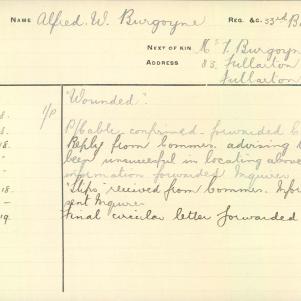 NAME Alfred. W. Burgoyne REG. &C. 53rd B
NEXT OF KIN Mr T. Burgoyn
ADDRESS 83. Fullarton
Fullarton
"Wounded".
8. 1/P P/Cable confirmed - forwarded
8. Reply from Commrs. advising
" been unsuccessful in locating above
" information forwarded Inquirer
18. "Slip" received from Commrs. Infor
- sent Inquirer
19. Final circular letter forwarded